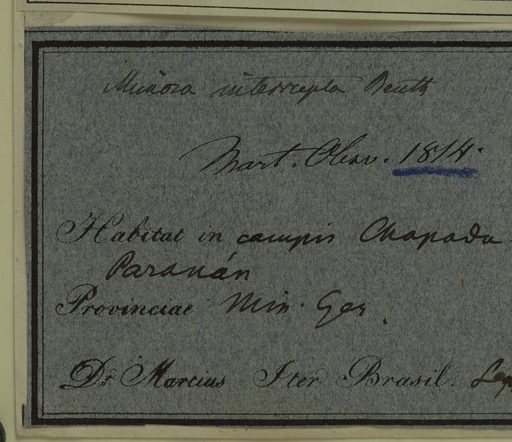 Mimosa interrupta Benth
Mart. Obsv. 1814.
Habitat in campis Chapada
Paranán
Provinciae Min. Ger.
Dr. Martius Iter Brasil.